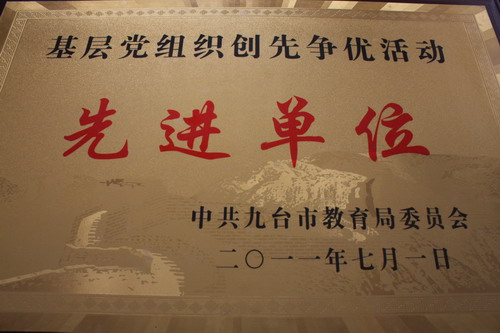 基层党组织创先争优活动
先进单位
中共九台市教育局委员会
二〇一一年七月一日